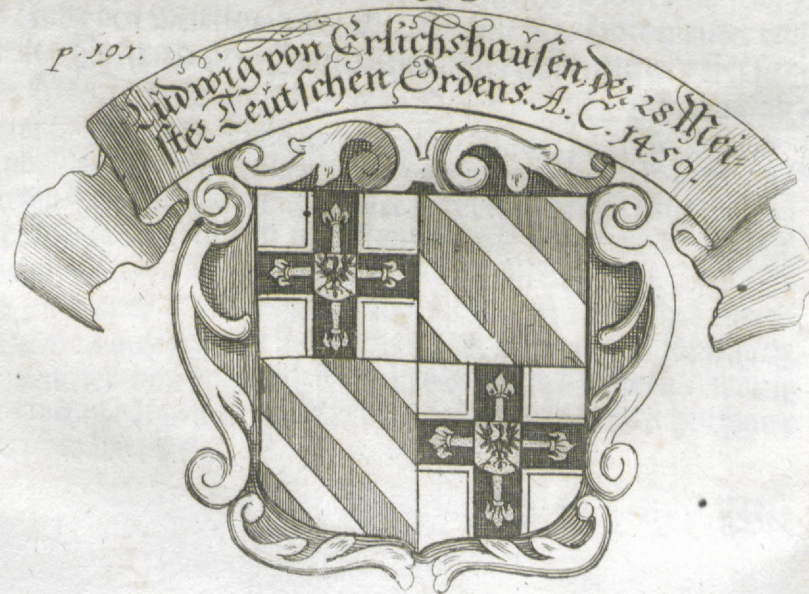 p. 191.
Ludwig von Erlichshausen, der 28. Mei-
ster Teutschen Ordens. A. C. 1450.